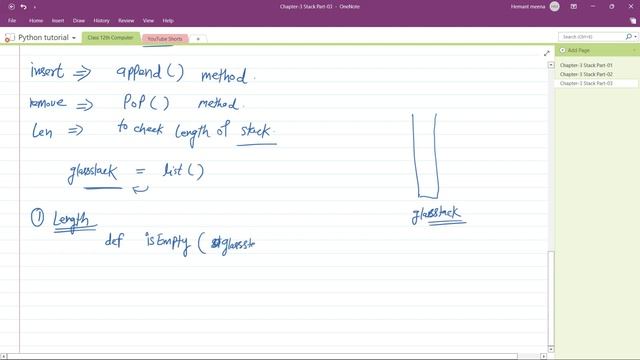 Chapter-3 Stack Part-03 - OneNote
Hemant meena
File Home Insert Draw View Help
Python tutorial
Class 12th Computer
YouTube Shorts
Search (Ctrl+E)
Add Page
Chapter-3 Stack Part-01
Chapter-3 Stack Part-02
Chapter-3 Stack Part-03
insert => append() method.
remove => PoP() method.
Len => to check Length of stack.
glasstack = list()
① Length
def isEmpty ( glassste
glasstack